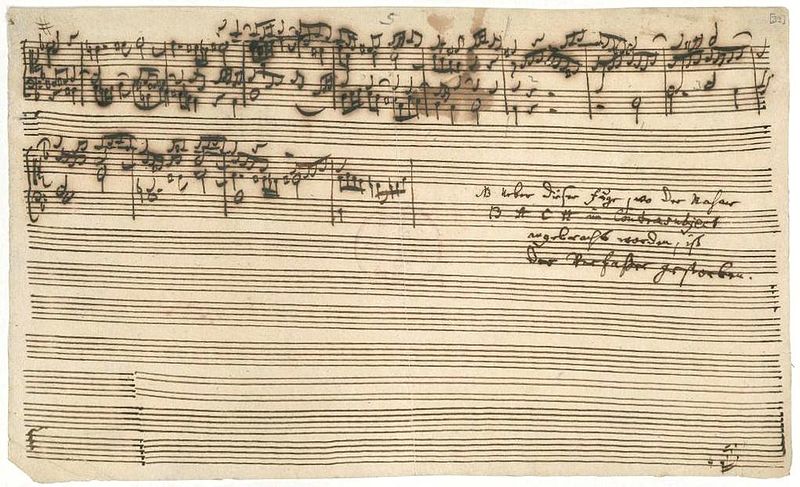 5
[32]
NB Ueber dieser Fuge, wo der Nahme
B A C H im Contrasubject
angebracht worden, ist
Der Verfaßer gestorben.